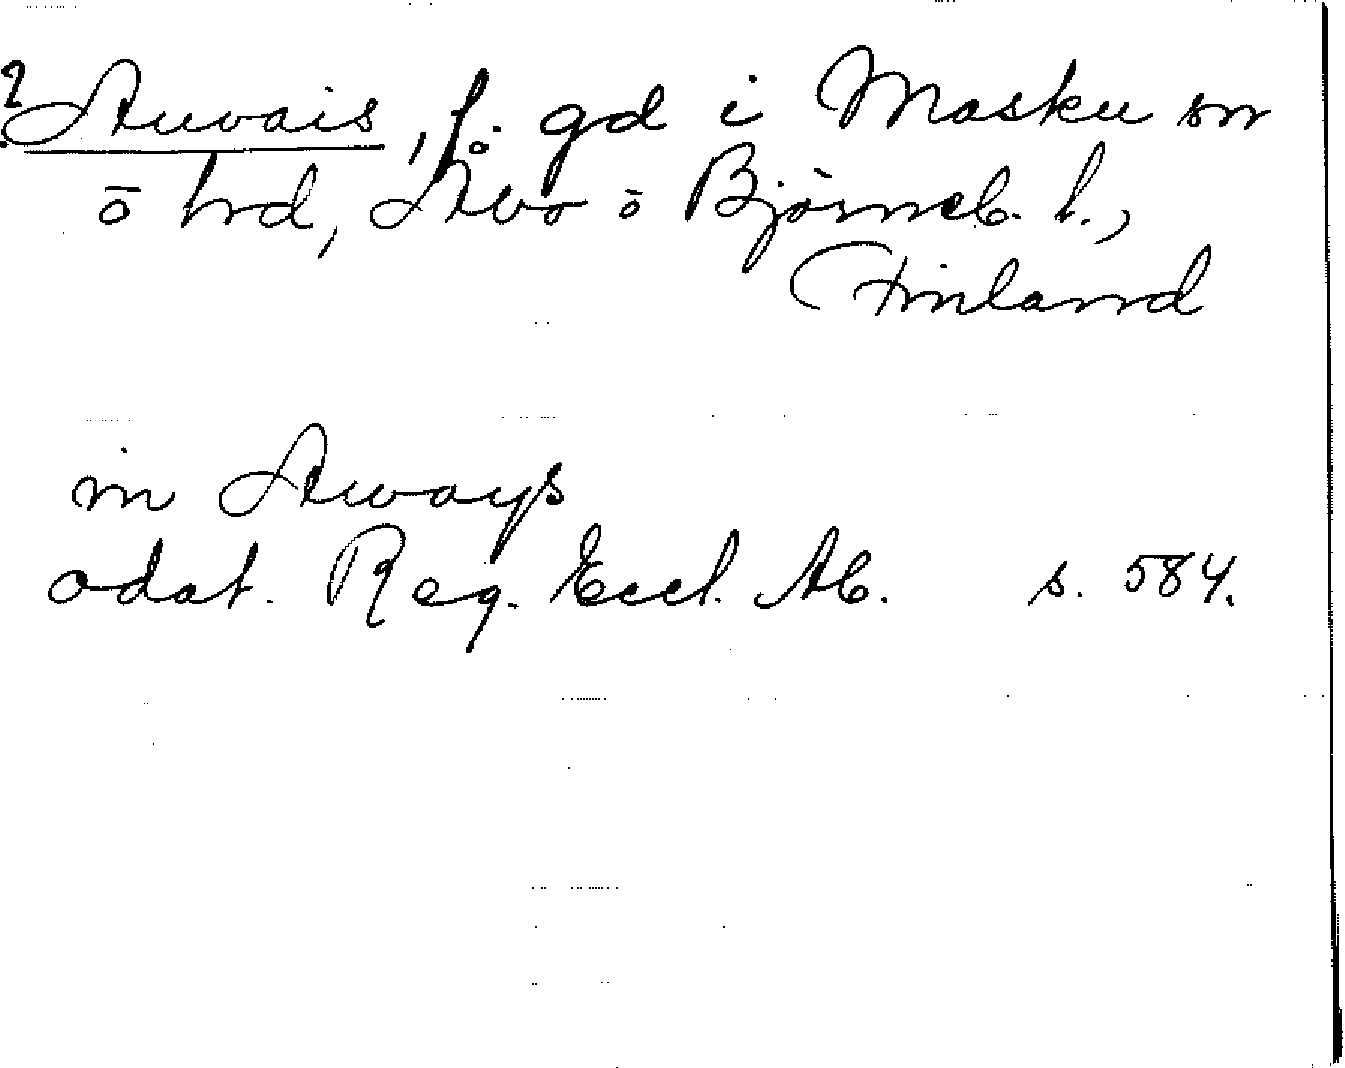 ? Auvais, f. gd i Masku sn
ō hrd, Åbo ō Björneb. l.,
Finland
in Aways
odat. Reg. Eccl. Ab. s. 584.